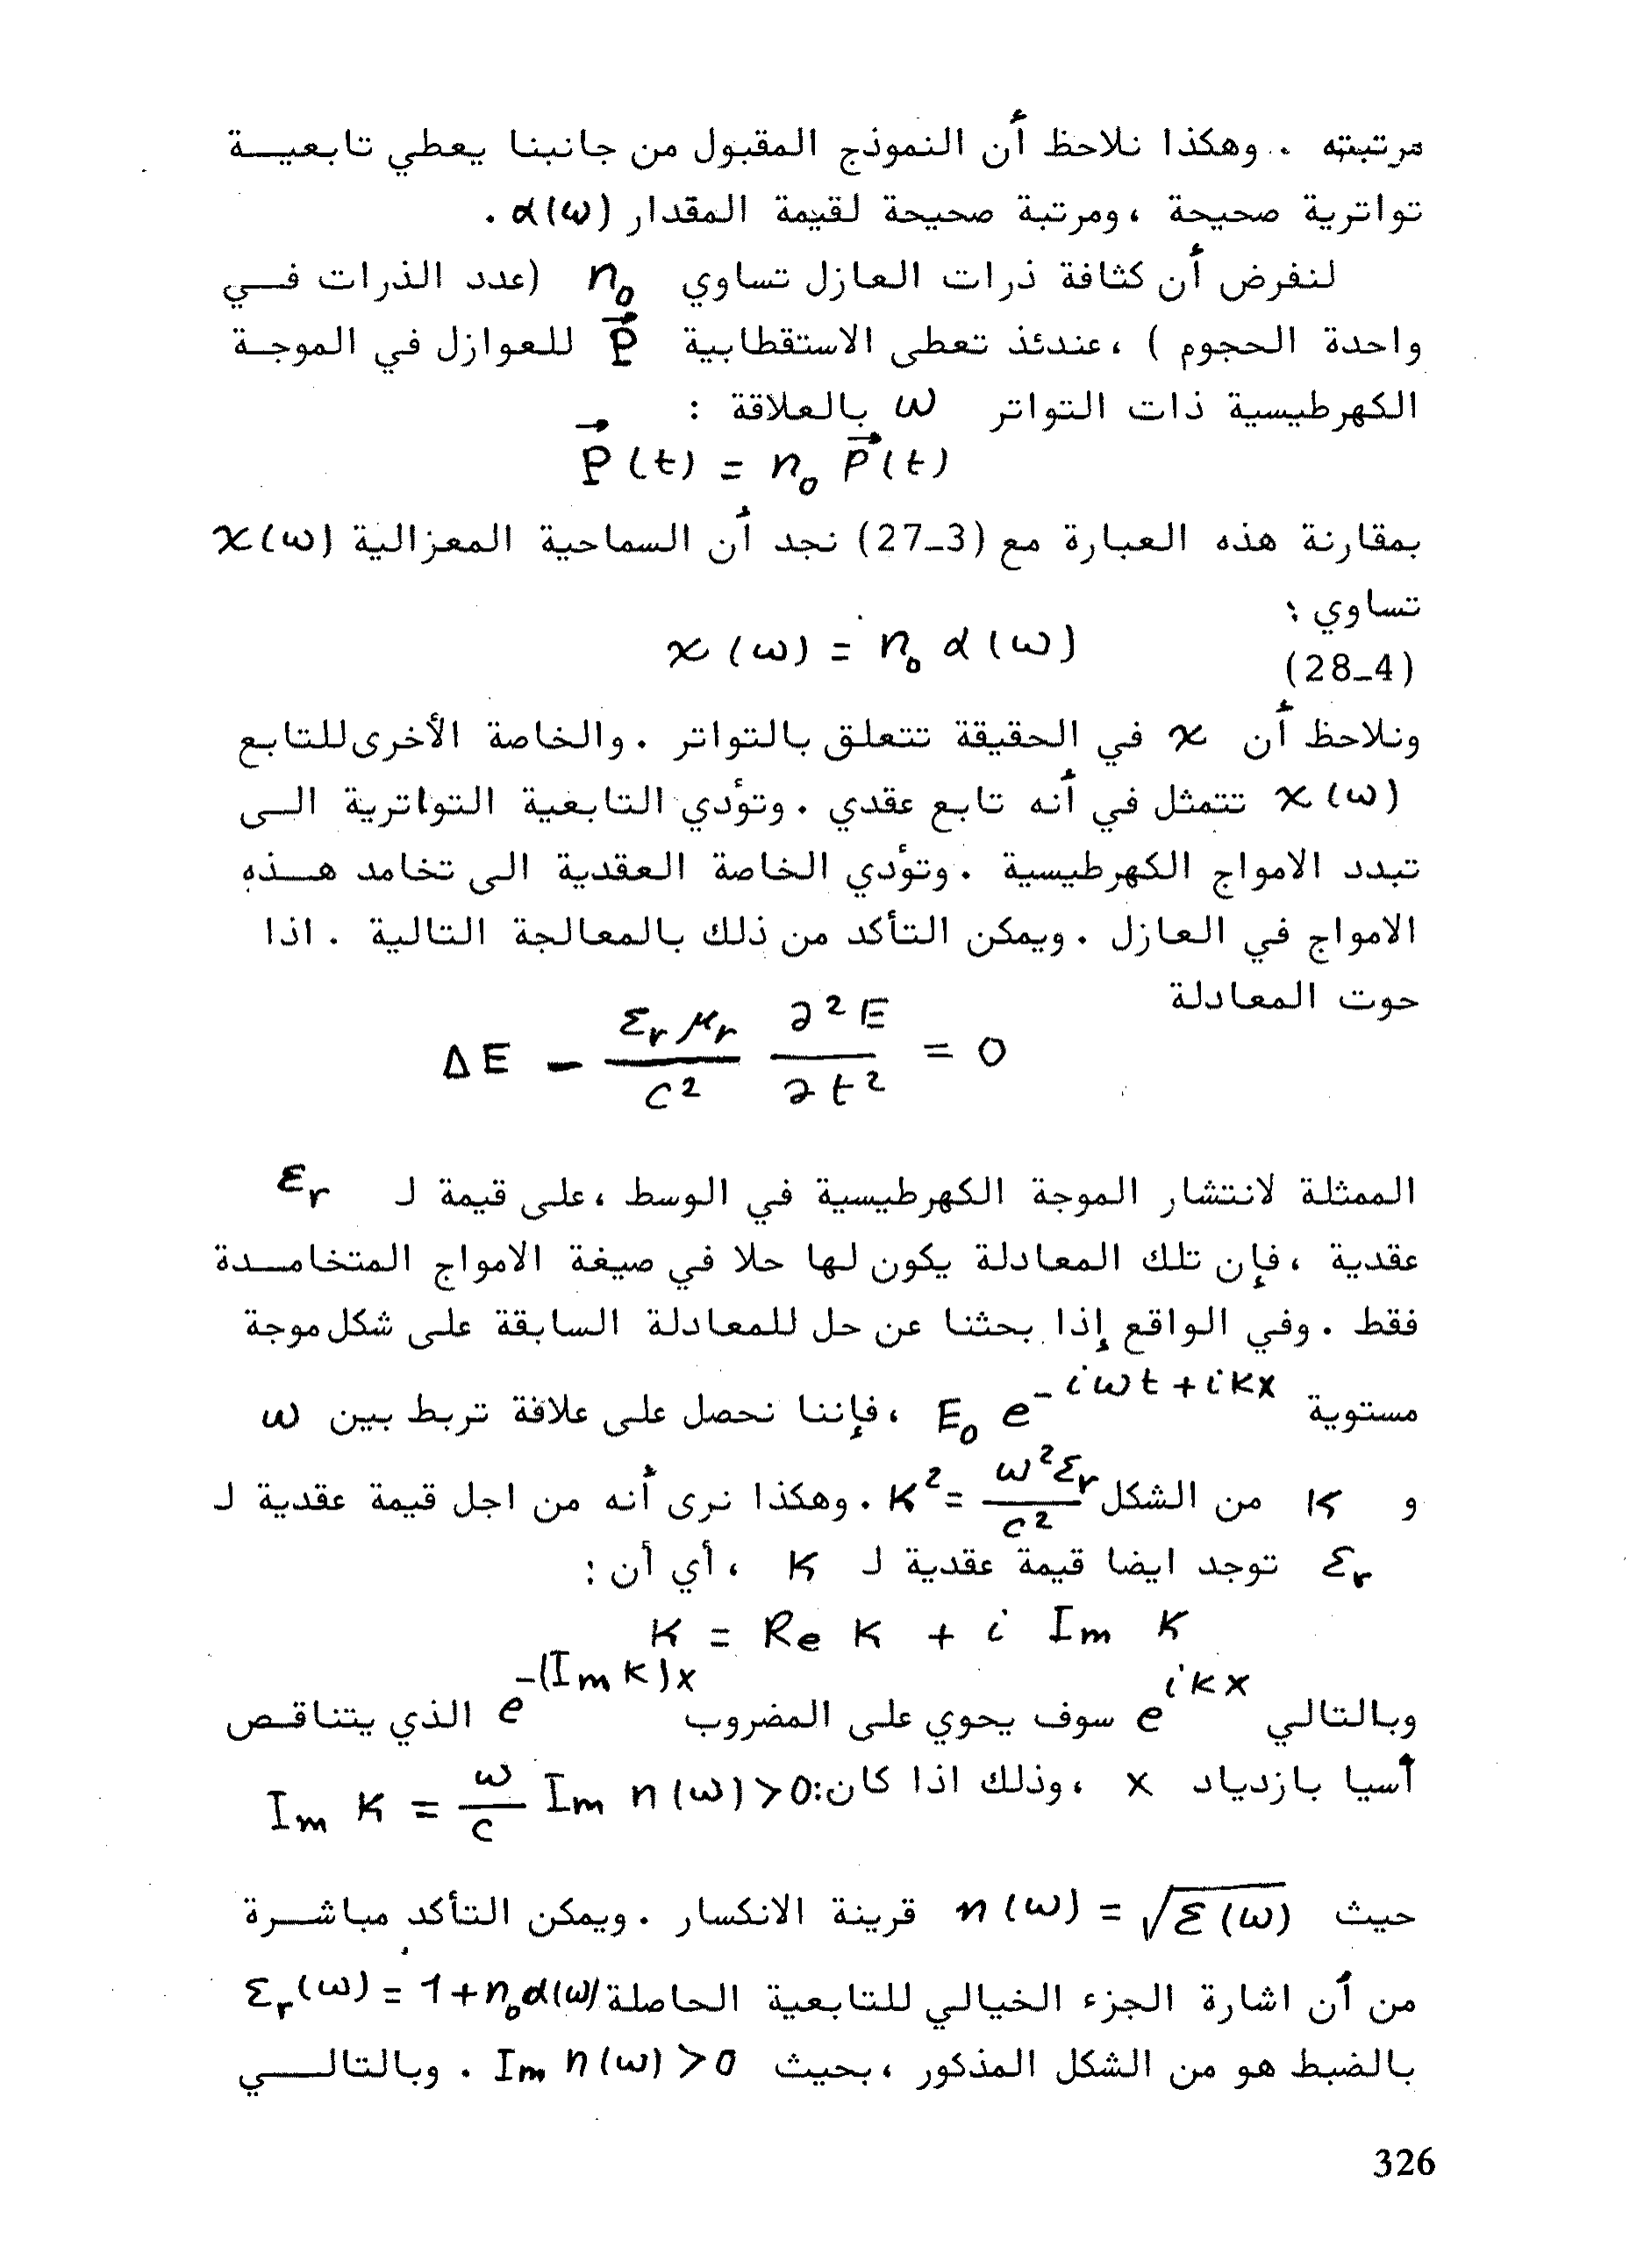 مرتبته . وهكذا نلاحظ أن النموذج المقبول من جانبنا يعطي تابعيـة
تواترية صحيحة ، ومرتبة صحيحة لقيمة المقدار α(ω) .
لنفرض أن كثافة ذرات العازل تساوي n₀ (عدد الذرات فـي
واحدة الحجوم ) ، عندئذ تعطى الاستقطابية P⃗ للعوازل في الموجـة
الكهرطيسية ذات التواتر ω بالعلاقة :
P⃗(t) = n₀ p⃗(t)
بمقارنة هذه العبارة مع (27_3) نجد أن السماحية المعزالية χ(ω)
تساوي :
χ(ω) = n₀ α(ω)
(28_4)
ونلاحظ أن χ في الحقيقة تتعلق بالتواتر . والخاصة الأخرى للتابع
χ(ω) تتمثل في أنه تابع عقدي . وتؤدي التابعية التواترية الـى
تبدد الامواج الكهرطيسية . وتؤدي الخاصة العقدية الى تخامد هـذه
الامواج في العازل . ويمكن التأكد من ذلك بالمعالجة التالية . اذا
حوت المعادلة
ΔE − (εᵣ μᵣ / c²) (∂²E / ∂t²) = 0
الممثلة لانتشار الموجة الكهرطيسية في الوسط ، على قيمة لـ εᵣ
عقدية ، فإن تلك المعادلة يكون لها حلا في صيغة الامواج المتخامـدة
فقط . وفي الواقع إذا بحثنا عن حل للمعادلة السابقة على شكل موجة
مستوية E₀ e^(−iωt+ikx) ، فإننا نحصل على علاقة تربط بين ω
و K من الشكل K² = ω²εᵣ/c² . وهكذا نرى أنه من اجل قيمة عقدية لـ
εᵣ توجد ايضا قيمة عقدية لـ K ، أي أن :
K = Re K + i Im K
وبالتالي e^(ikx) سوف يحوي على المضروب e^(−(Im k)x) الذي يتناقـص
أسيا بازدياد x ، وذلك اذا كان: Im K = (ω/c) Im n(ω) > 0
حيث n(ω) = √ε(ω) قرينة الانكسار . ويمكن التأكد مباشـرة
من أن اشارة الجزء الخيالي للتابعية الحاصلة εᵣ(ω) = 1+n₀α(ω)
بالضبط هو من الشكل المذكور ، بحيث Im n(ω) > 0 . وبالتالـــي
326